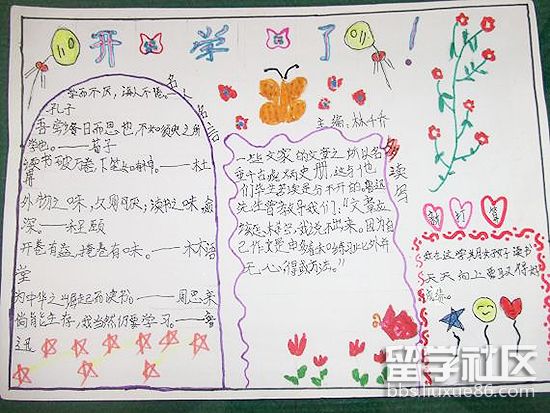 开学了！
名人名言
学而不厌，诲人不倦。——
孔子
吾尝终日而思也，不如须臾之所
学也。——荀子
读书破万卷，下笔如有神。——杜
甫
外物之味，久则可厌；读书之味，愈
深。——程颐
开卷有益，掩卷有味。——木木语
堂
为中华之崛起而读书。——周恩来
倘能生存，我当然仍要学习。——鲁
迅
主编：林千卉
读写
一些文豪的文章之所以名
垂千古威名史册，这与他
们毕生苦读是分不开的。鲁迅
先生曾教导我们，“文章应
该怎样写，我说不出来，因为自
己作文是由多看和练习，此外并
无心得或方法。”
新打算
我在这学期好好读书
天天向上要取得好
成绩。
留学社区
bbs.liuxue86.com